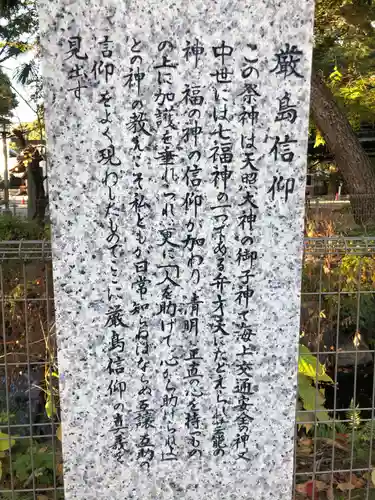 厳島信仰
この祭神は天照大神の御子神で海上交通安全の神又
中世には七福神の一つである弁才天にたとえられ竈の
神 福の神の信仰が加わり清明 正直の心を持つもの
の上に加護を垂れ つれ 更に「人を助けて心から助けられよ」
との神の教えこそ私ども日常知らねばならぬ互譲互助の
信仰をよく現わしたものでここに厳島信仰の真義を
見出す